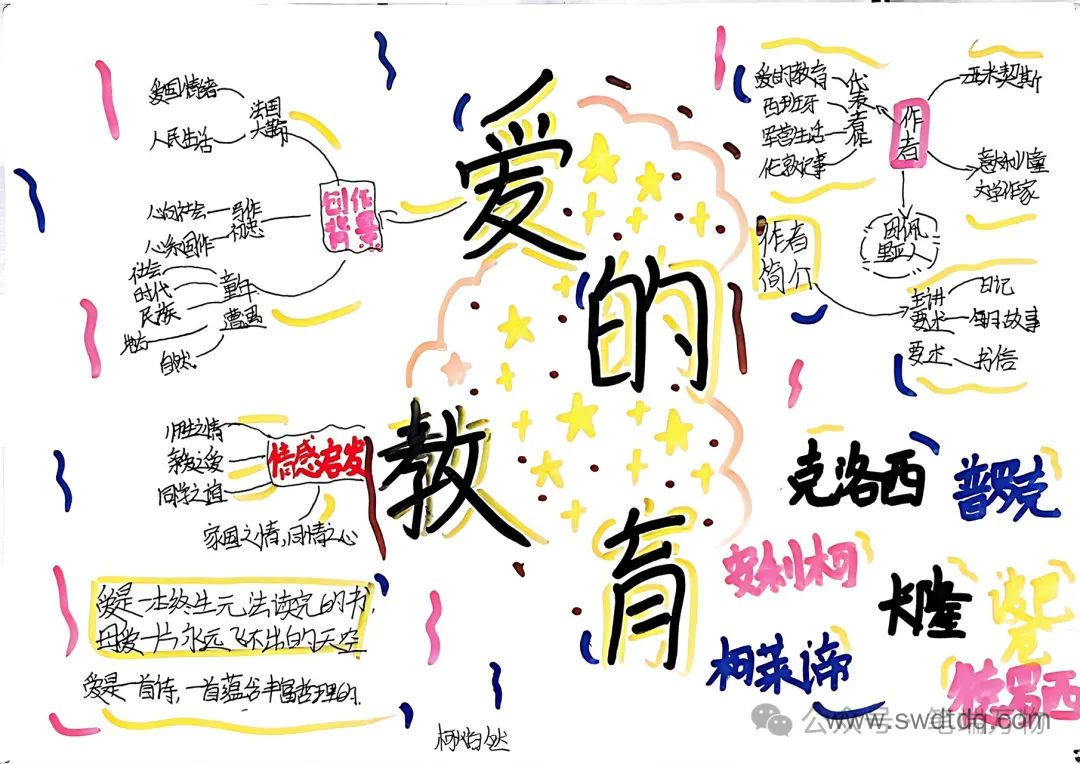 爱的教育
创作背景
法国
大革命
爱国情绪
人民生活
写作
初志
心向社会
心系国作
童年
遭遇
社会
时代
民族
自然
情感启发
师生之情
亲友之爱
同学之谊
家国之情,同情之心
爱是一本终生无法读完的书,
母爱一片永远飞不出的天空
爱是一首诗,一首蕴含丰富哲理的.
作者
亚米契斯
意大利儿童
文学作家
因佩
里亚人
代表
著作
爱的教育
西班牙
军营生活
伦敦记事
作者
简介
主讲
要术
日记
每月故事
要术
书信
克洛西
普罗克
安利柯
卡隆
诺巴
柯莱谛
公众号·笔端万物
www.swdtdq.com